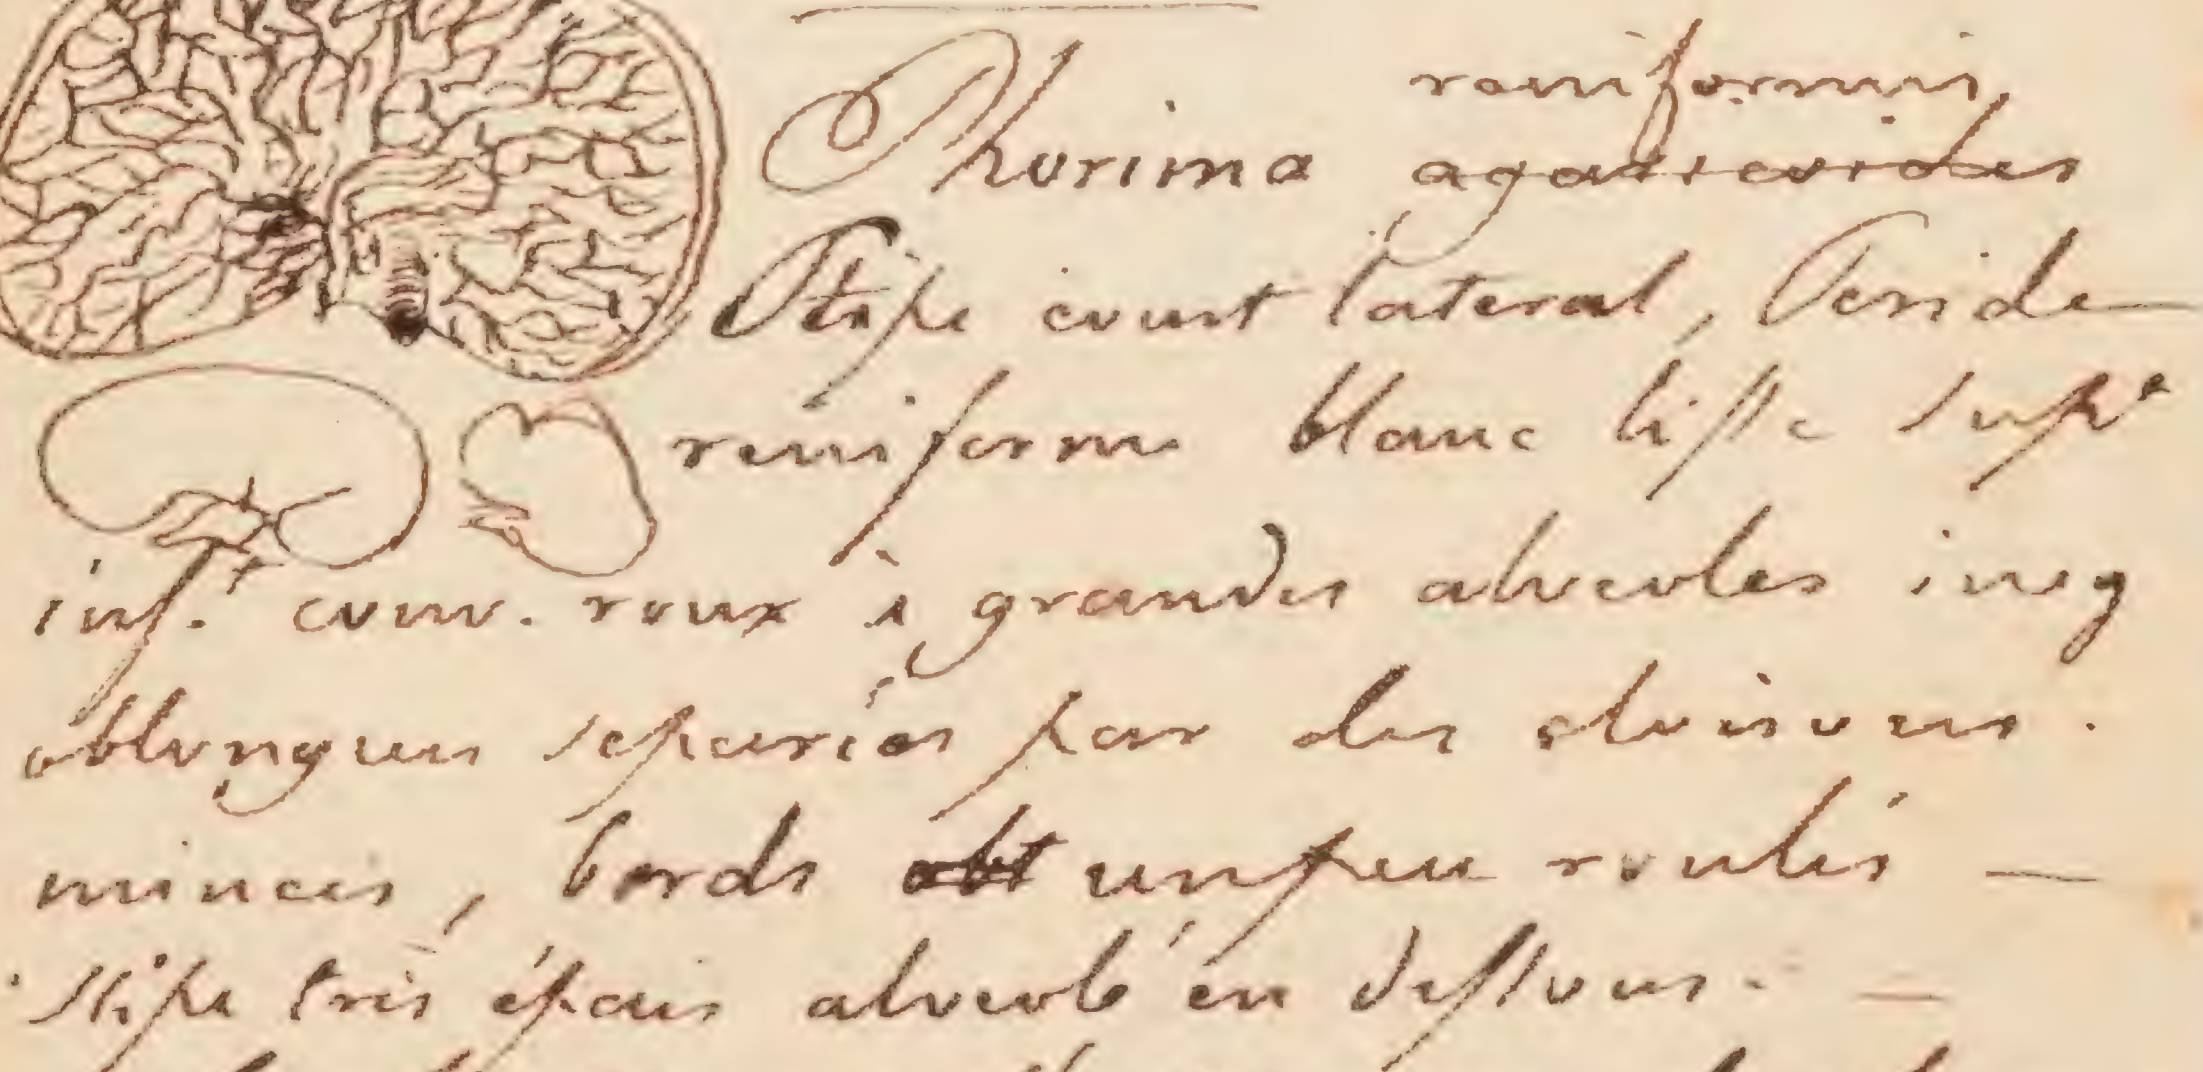 reniformis
Phorima agaricoides
Stipe court lateral, Peride
reniforme blanc lisse supe
inft. conv. roux à grandes alveoles ineg
oblongues separées par des cloisons.
minces, bords obt un peu roulés —
Stipe très épais alveolé en dessous. —